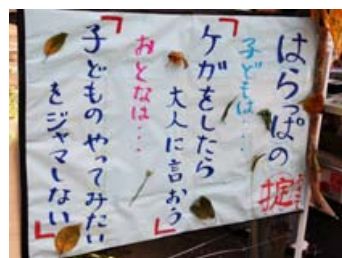 はらっぱの掟
子どもは・・・
ケガをしたら
大人に言おう
おとなは・・・
子どものやってみたい
をジャマしない